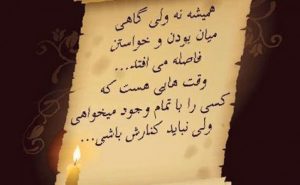 همیشه نه ولی گاهی
میان بودن و خواستن
فاصله می افتد...
وقت هایی هست که
کسی را با تمام وجود میخواهی
ولی نباید کنارش باشی...